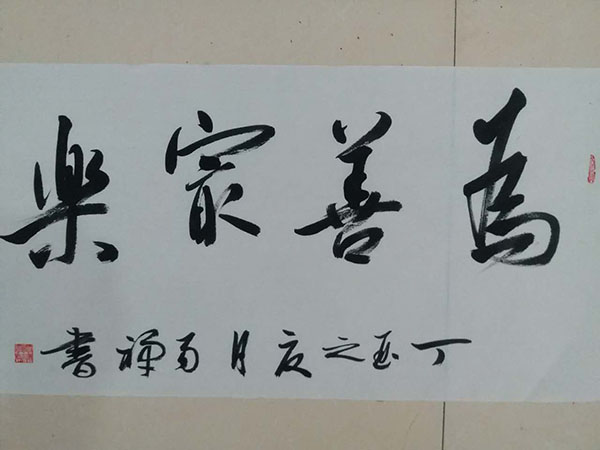 為善最樂
丁酉之夏月禅書